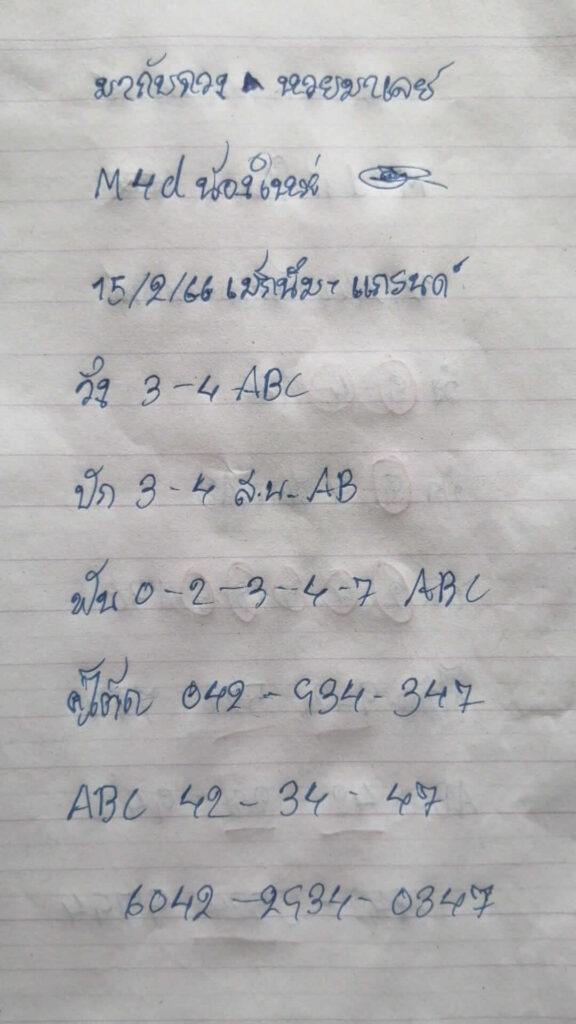 มากับดวง หวยมาเลย์
M4d น้องใหม่
15/2/66 แม็กนั่ม แกรนด์
วิ่ง 3-4 ABC
ปัก 3-4 ส.น. AB
ฟัน 0-2-3-4-7 ABC
คู่โต๊ด 042-934-347
ABC 42-34-47
6042-2934-0347